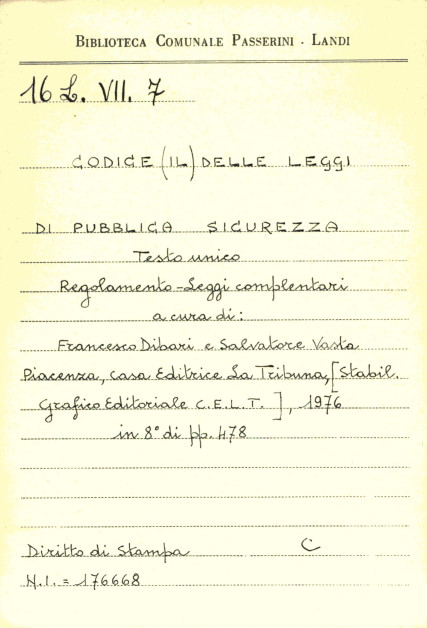 BIBLIOTECA COMUNALE PASSERINI - LANDI
16 L. VII. 7
CODICE (IL) DELLE LEGGI
DI PUBBLICA SICUREZZA
Testo unico
Regolamento - Leggi complentari
a cura di:
Francesco Dibari e Salvatore Vasta
Piacenza, Casa Editrice La Tribuna, [Stabil.
Grafico Editoriale C.E.L.T. ], 1976
in 8° di pp. 478
Diritto di Stampa C
N.I. = 176668